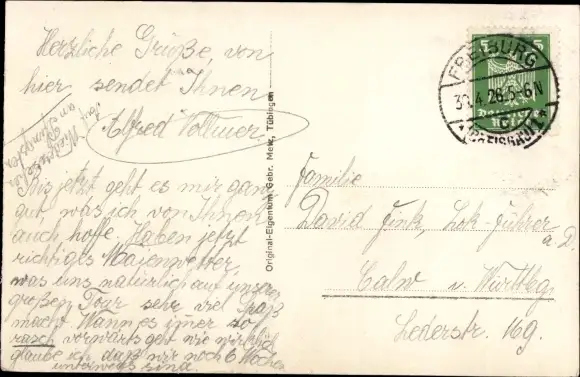 Herzliche Grüße, von
hier sendet Ihnen
Alfred Vollmer.
Bis jetzt geht es mir ganz
gut, was ich von Ihnen
auch hoffe. Haben jetzt
richtiges Maienwetter,
was uns natürlich auf unserer
großen Tour sehr viel Spaß
macht. Wann es imer so
rasch vorwärts geht wie wirklich
glaube ich daß wir noch 6 Wochen
unterwegs sind.
auf
Wiedersehen
an
Original-Eigentum Gebr. Metz, Tübingen
5 5
FREIBURG
30.4.26.5-6N
* (BREISGAU) *
Deutsches
Reich
Familie
David Fink, Lok-Führer
a. D.
Calw i. Württbg.
Lederstr. 169.